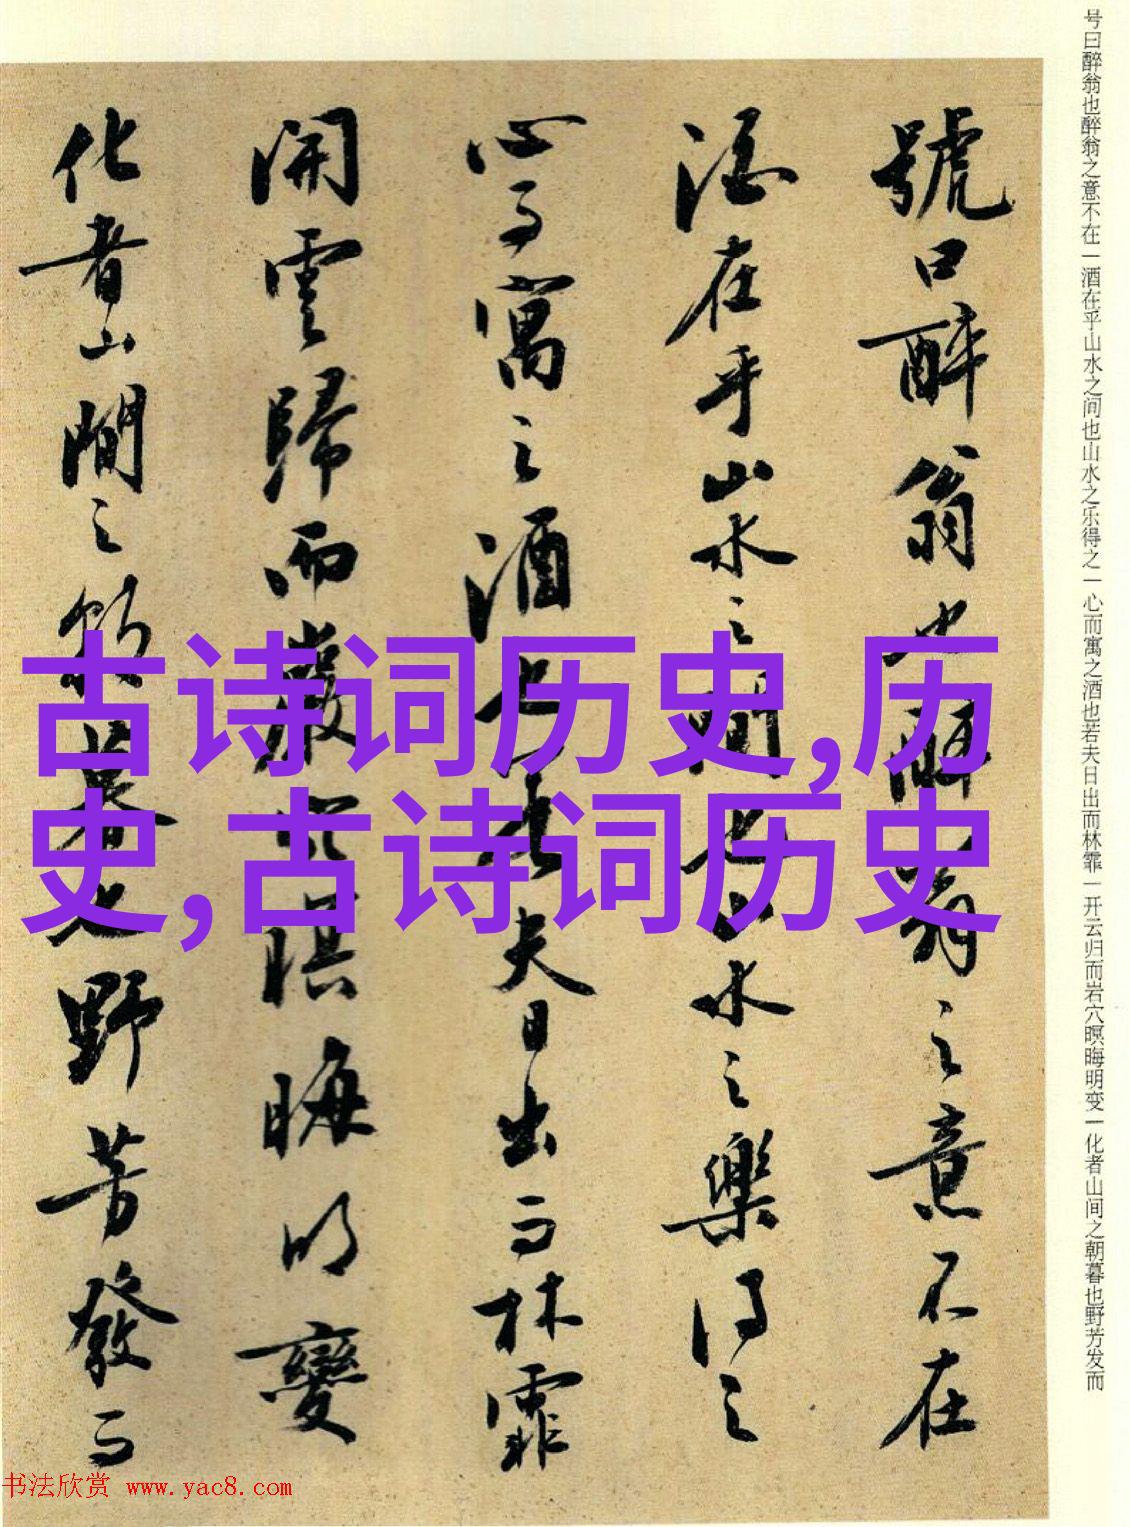 号曰醉翁也醉翁之意不在一酒在乎山水之间也山水之乐得之一心而寓之酒也若夫日出而林霏一开云归而岩穴暝晦明变一化者山间之朝暮也野芳发而
號曰醉翁也醉翁之意不在
酒在乎山水之間也山水之樂得之
心而寓之酒也若夫日出而林霏
開雲歸而巖穴暝晦明變
化者山間之朝暮也野芳發而
古诗词历史,历
史,古诗词历史
书法欣赏 www.yac8.com